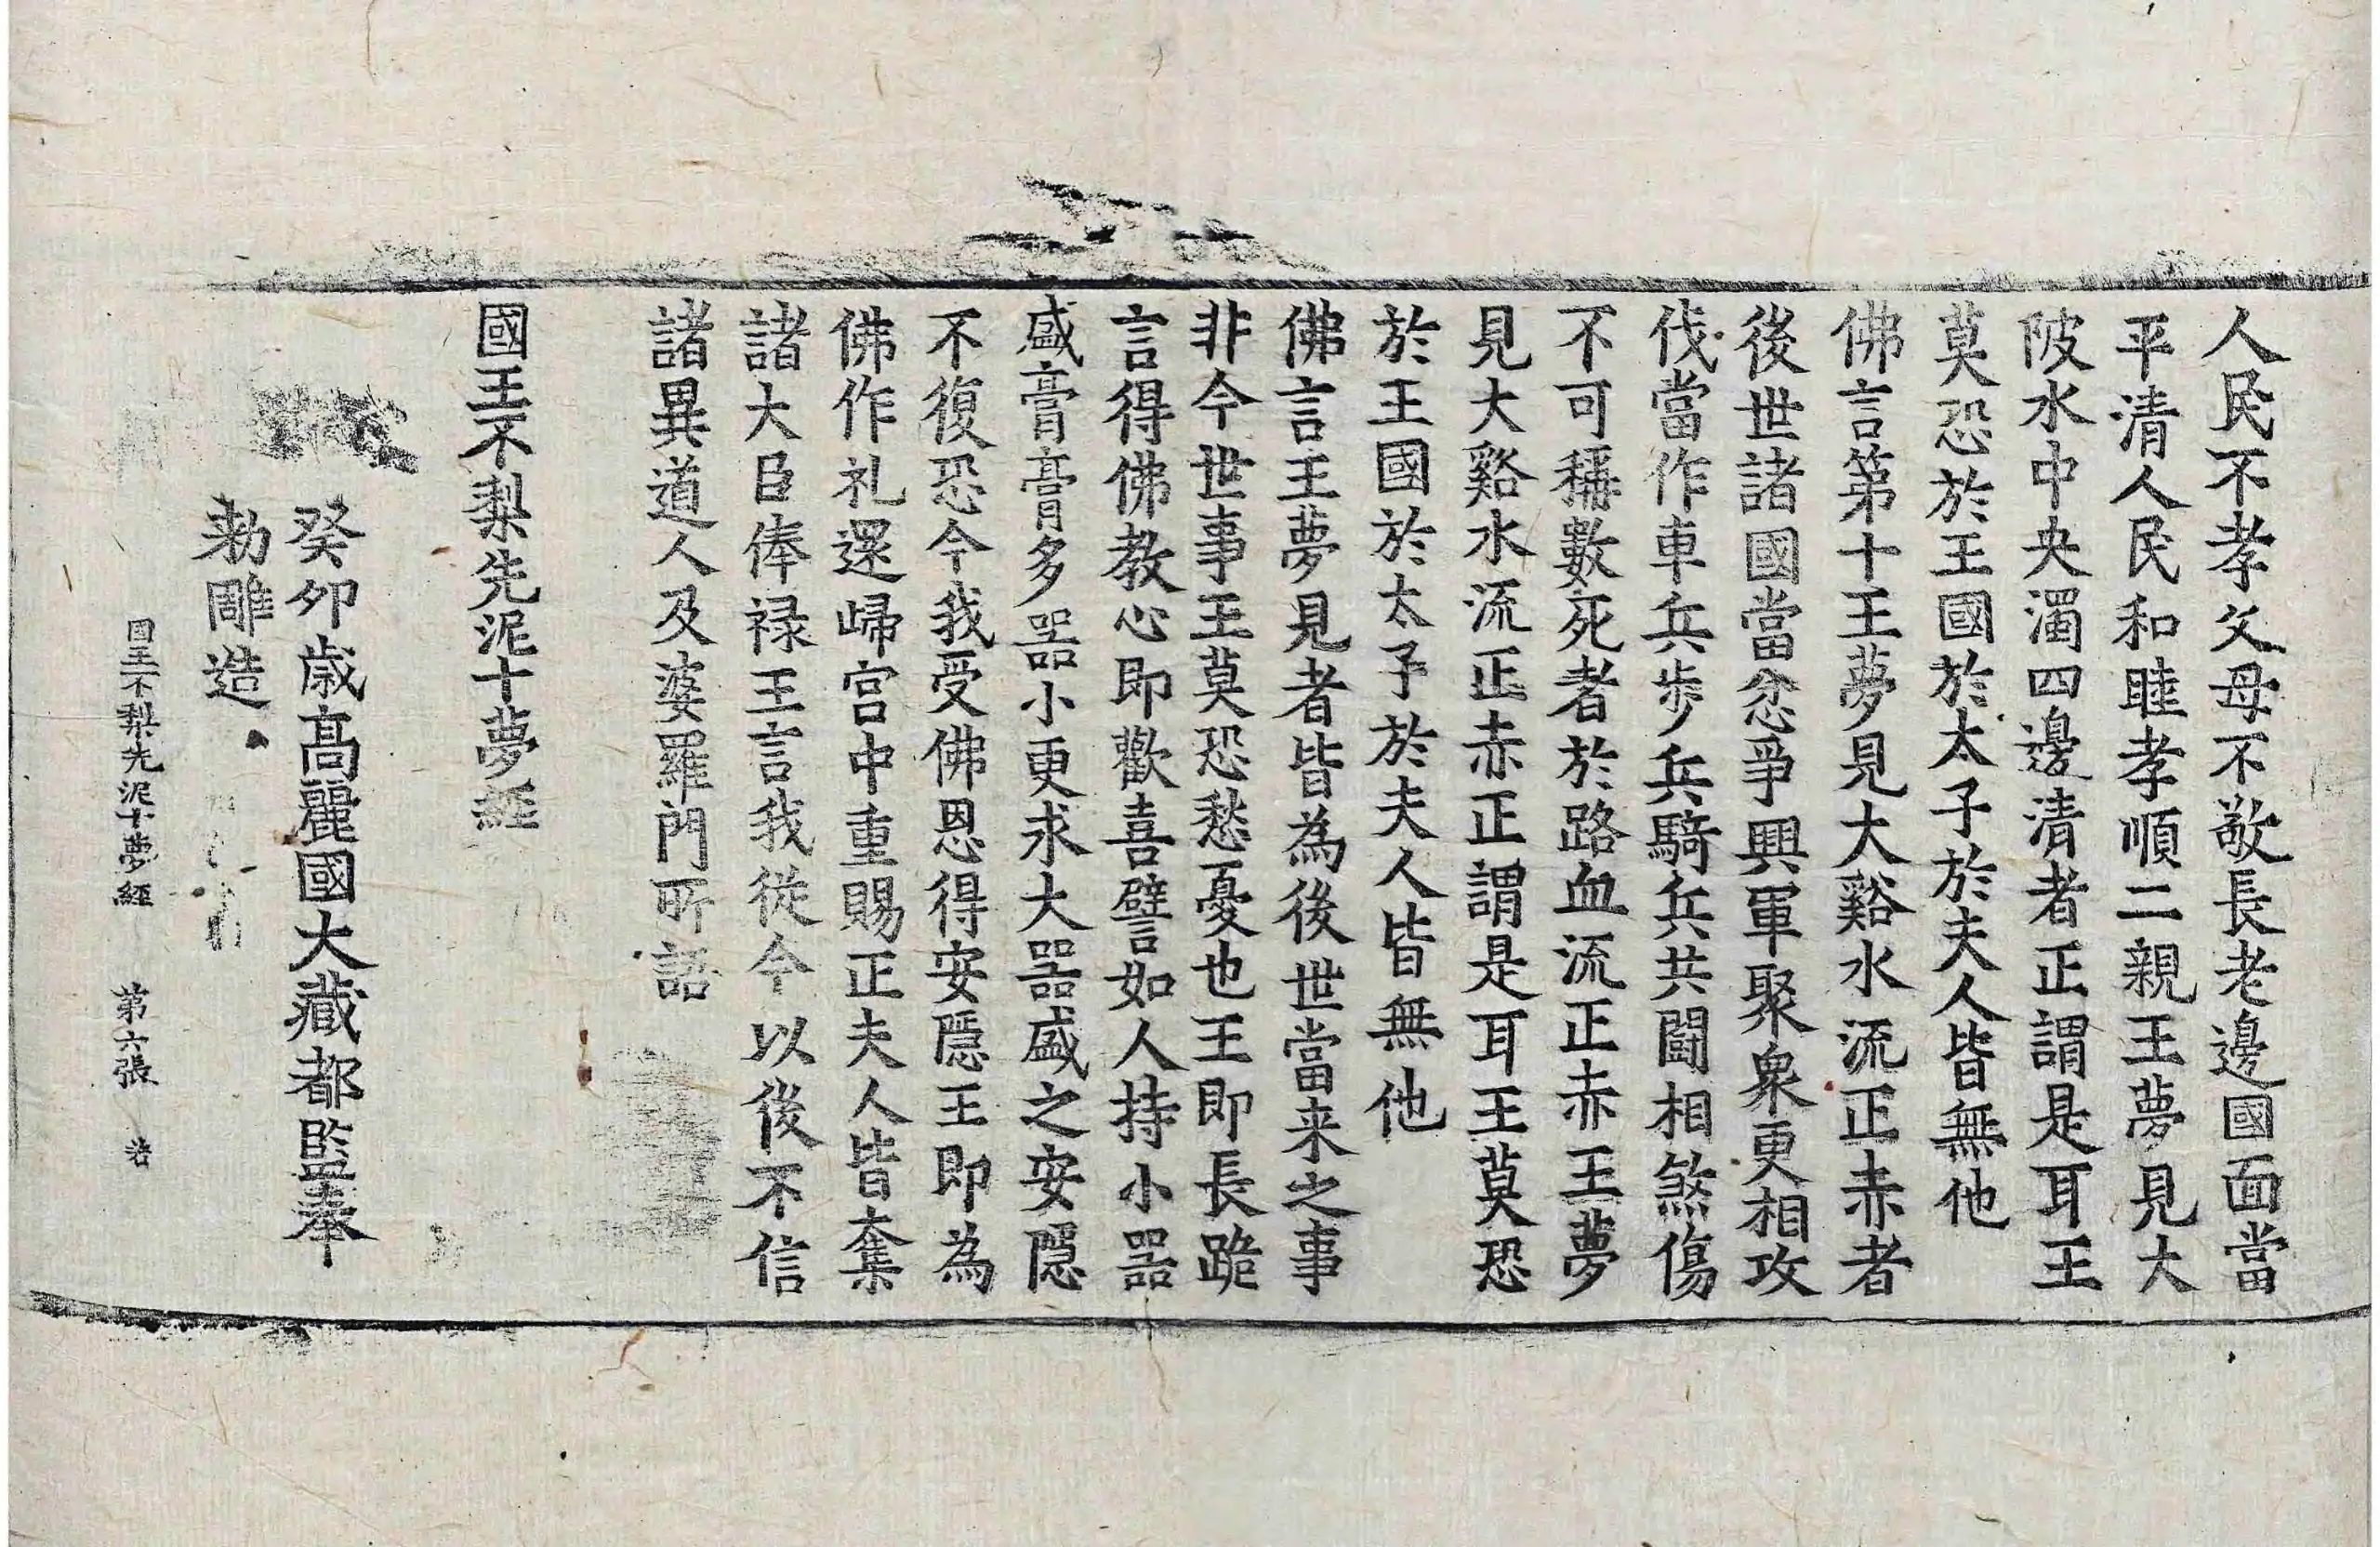 人民不孝父母不敬長老邊國面當
平清人民和睦孝順二親王夢見大
陂水中央濁四邊清者正謂是耳王
莫恐於王國於太子於夫人皆無他
佛言第十王夢見大谿水流正赤者
後世諸國當忿爭興軍聚衆更相攻
伐當作車兵步兵騎兵共鬪相煞傷
不可稱數死者於路血流正赤王夢
見大谿水流正赤正謂是耳王莫恐
於王國於太子於夫人皆無他
佛言王夢見者皆為後世當来之事
非今世事王莫恐愁憂也王即長跪
言得佛教心即歡喜譬如人持小器
盛膏膏多器小更求大器盛之安隱
不復恐今我受佛恩得安隱王即為
佛作礼還歸宮中重賜正夫人皆奪
諸大臣俸禄王言我從今以後不信
諸異道人及婆羅門所語
國王不梨先泥十夢經
癸卯歲高麗國大藏都監奉
勑雕造
國王不梨先泥十夢經 第六張